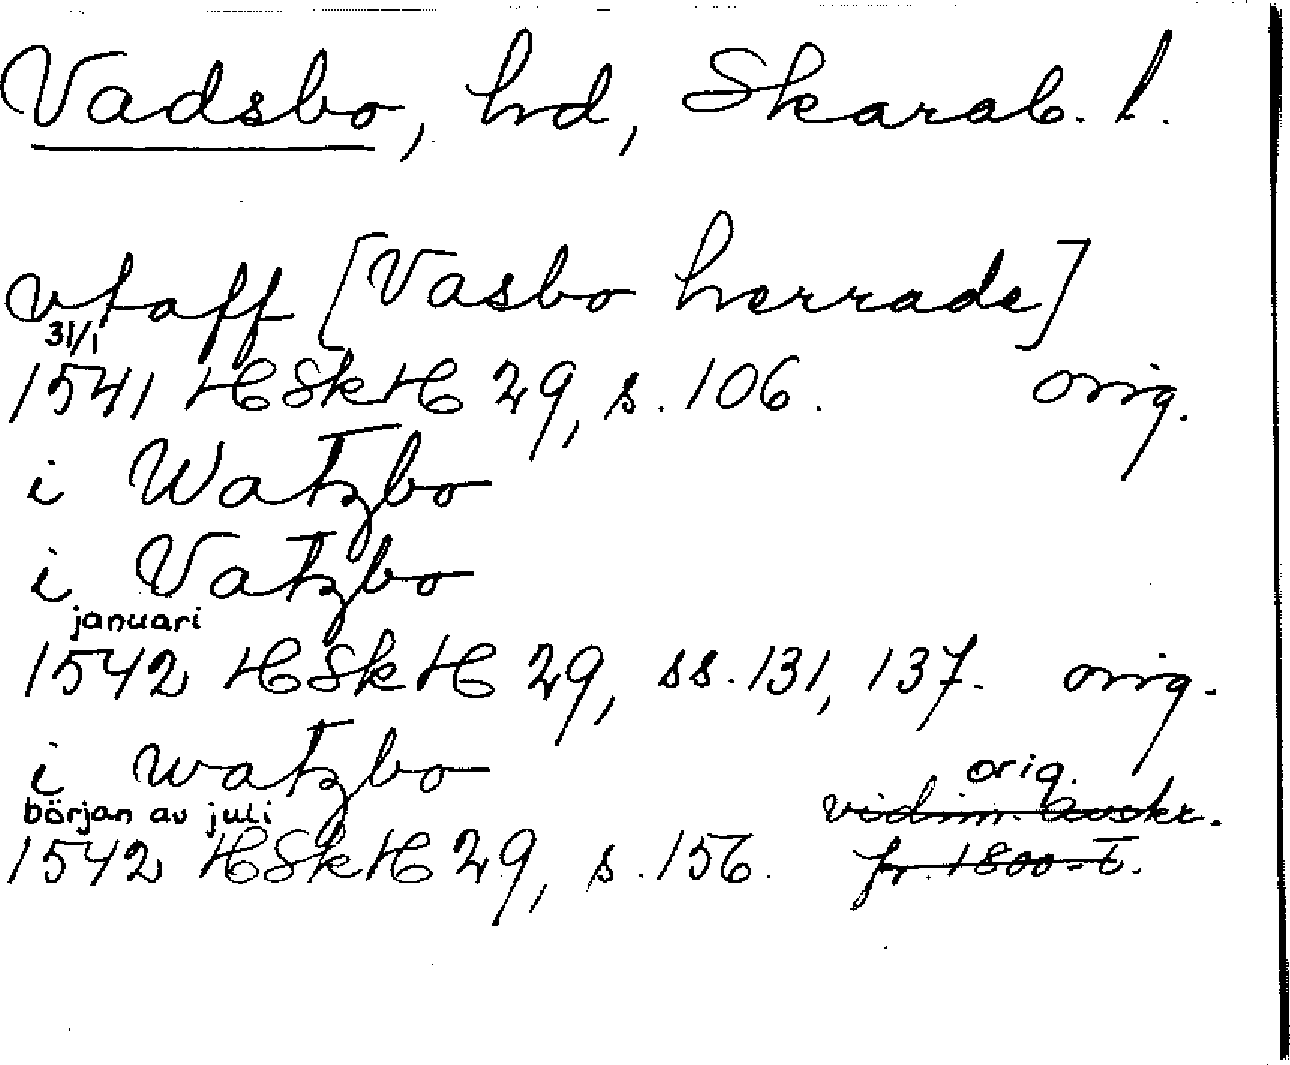 Vadsbo, hd, Skarab. l.
vtaff [Vasbo herrade]
31/1
1541 HSkH 29, s. 106. orig.
i Watzbo
i Vatzbo
januari
1542 HSkH 29, ss. 131, 137. orig.
i watzbo orig.
början av juli vidim. avskr.
1542 HSkH 29, s. 156. fr. 1800-t.